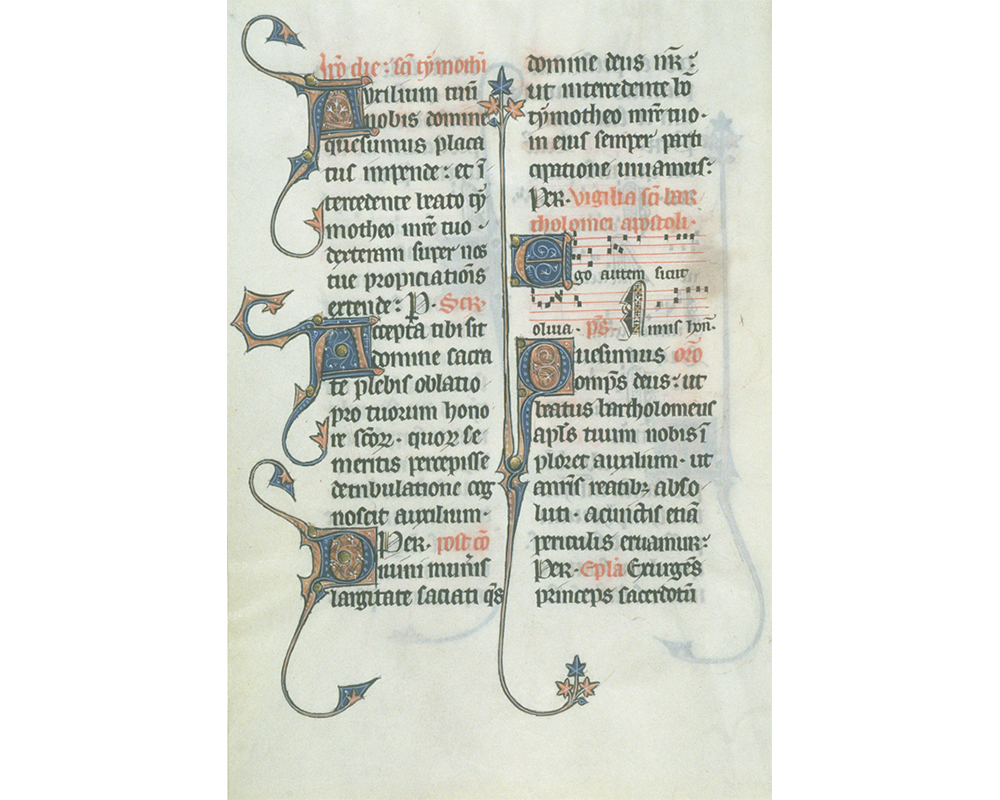 Ipo die: sci tymothi
Auxilium tuū
nobis domine
quesumus placa
tus impende: et ī
tercedente beato ty
motheo mr̄e tuo
dexteram super nos
tue propiciatiōis
extende: P. Scr̄.
Accepta tibi sit
domine sacra
te plebis oblatio
pro tuorum hono
re scōꝝ. quoꝝ se
meritis percepisse
de tribulatione cog
noscit auxilium.
Per. post cō
Divini mun̄is
largitate saciati qs̄
domine deus nr̄:
ut intercedente bō
tymotheo mr̄e tuo.
in eius semper parti
cipatione vivamus:
Per. Vigilia sci bar
tholomei apostoli.
Ego autem sicut
oliva. ps̄. limus hōn.
Quesumus orō
omps̄ deus: ut
beatus bartholomeus
apl̄s tuum nobis ī
ploret auxilium. ut
a nr̄is reatibꝫ abso
luti. a cunctis etiā
periculis eruamur:
Per. Epl̄a Exurgēs
princeps sacerdotū